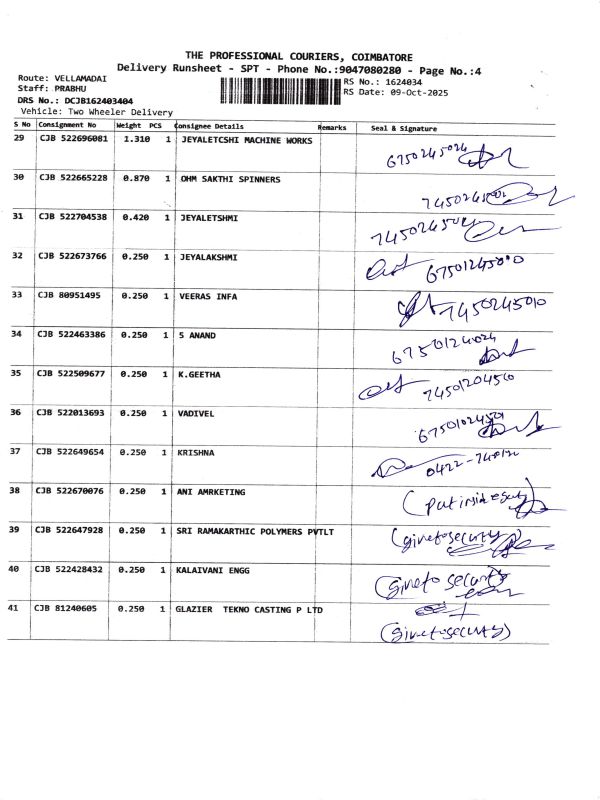 THE PROFESSIONAL COURIERS, COIMBATORE
Delivery Runsheet - SPT - Phone No.:9047080280 - Page No.:4
Route: VELLAMADAI
Staff: PRABHU
DRS No.: DCJB162403404
Vehicle: Two Wheeler Delivery
RS No.: 1624034
RS Date: 09-Oct-2025
S No Consignment No Weight PCS Consignee Details Remarks Seal & Signature
29 CJB 522696081 1.310 1 JEYALETCSHI MACHINE WORKS 6750245024
30 CJB 522665228 0.870 1 OHM SAKTHI SPINNERS
31 CJB 522704538 0.420 1 JEYALETSHMI
32 CJB 522673766 0.250 1 JEYALAKSHMI
33 CJB 80951495 0.250 1 VEERAS INFA 7450245010
34 CJB 522463386 0.250 1 S ANAND
35 CJB 522509677 0.250 1 K.GEETHA
36 CJB 522013693 0.250 1 VADIVEL
37 CJB 522649654 0.250 1 KRISHNA
38 CJB 522670076 0.250 1 ANI AMRKETING (Put inside
39 CJB 522647928 0.250 1 SRI RAMAKARTHIC POLYMERS PVTLT (give to security)
40 CJB 522428432 0.250 1 KALAIVANI ENGG (give to security)
41 CJB 81240605 0.250 1 GLAZIER TEKNO CASTING P LTD
(give to security)